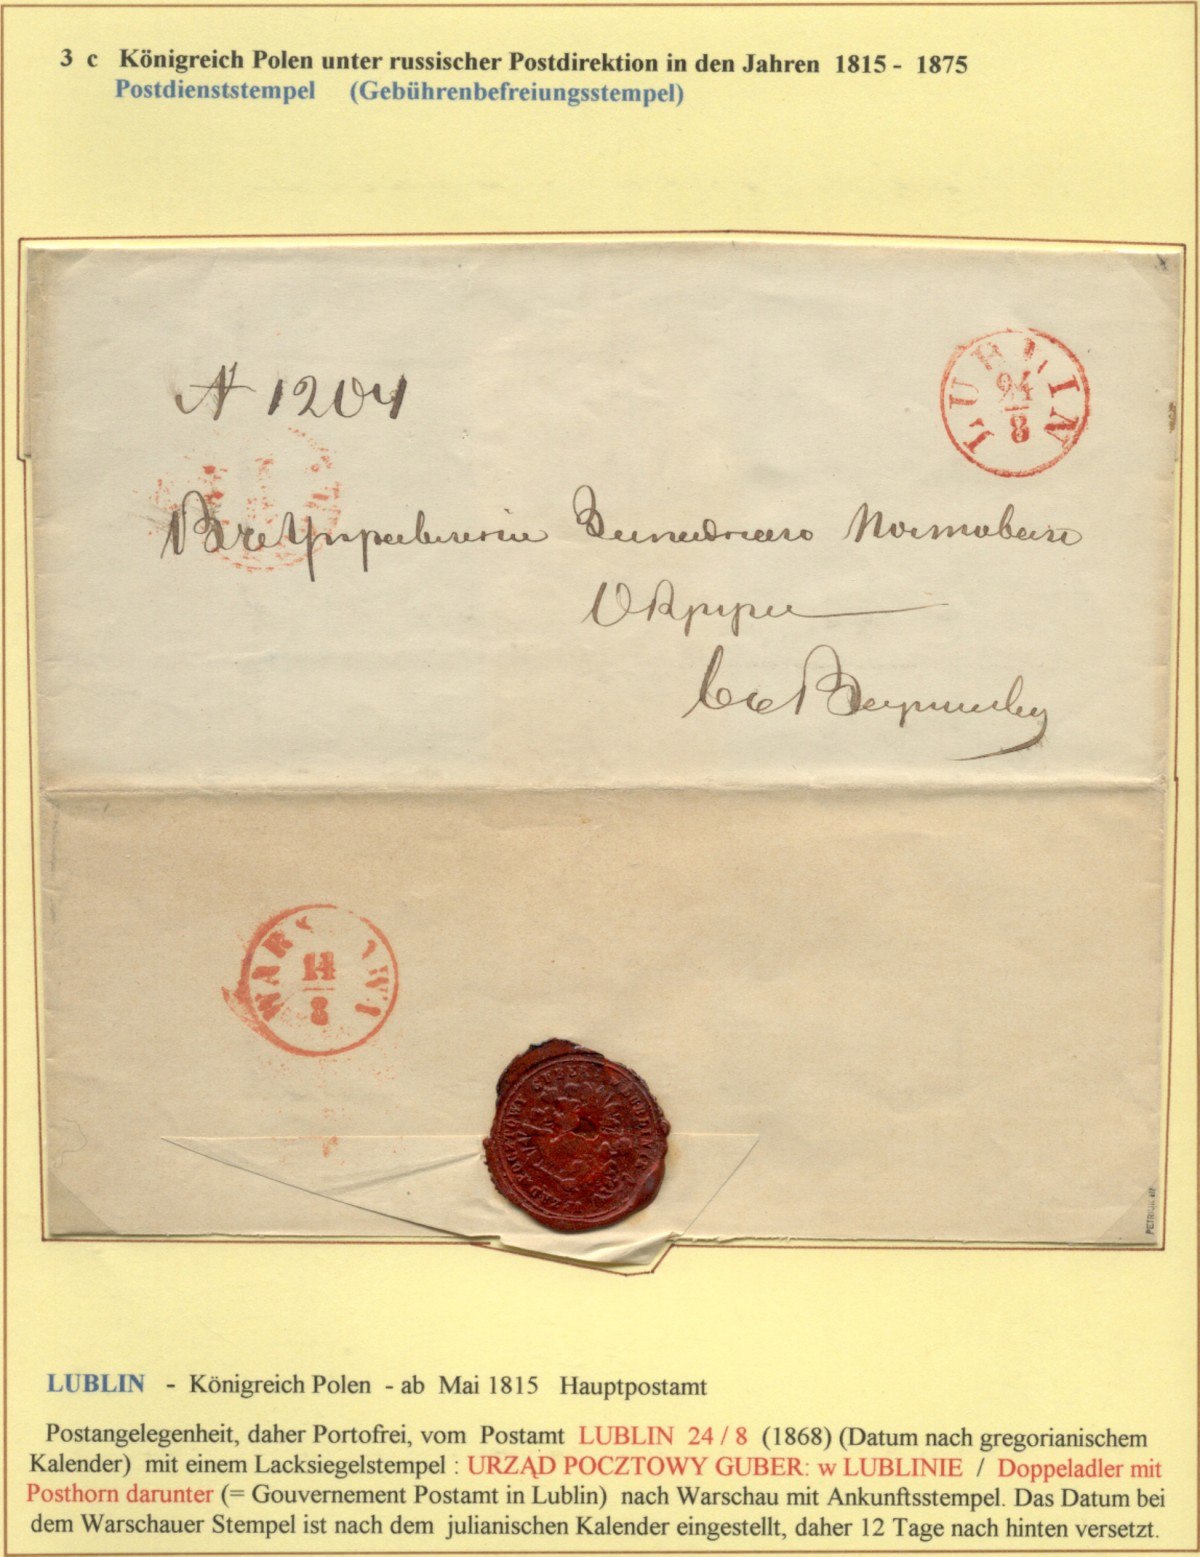 3 c Königreich Polen unter russischer Postdirektion in den Jahren 1815 - 1875
Postdienststempel (Gebührenbefreiungsstempel)
LUBLIN
24
8
№ 1204
Западнаго Почтоваго
Округа
въ Варшаву
WARS AWA
14
8
URZĄD POCZTOWY GUBER: w LUBLINIE
PETRIUK
LUBLIN - Königreich Polen - ab Mai 1815 Hauptpostamt
Postangelegenheit, daher Portofrei, vom Postamt LUBLIN 24 / 8 (1868) (Datum nach gregorianischem
Kalender) mit einem Lacksiegelstempel : URZĄD POCZTOWY GUBER: w LUBLINIE / Doppeladler mit
Posthorn darunter (= Gouvernement Postamt in Lublin) nach Warschau mit Ankunftsstempel. Das Datum bei
dem Warschauer Stempel ist nach dem julianischen Kalender eingestellt, daher 12 Tage nach hinten versetzt.